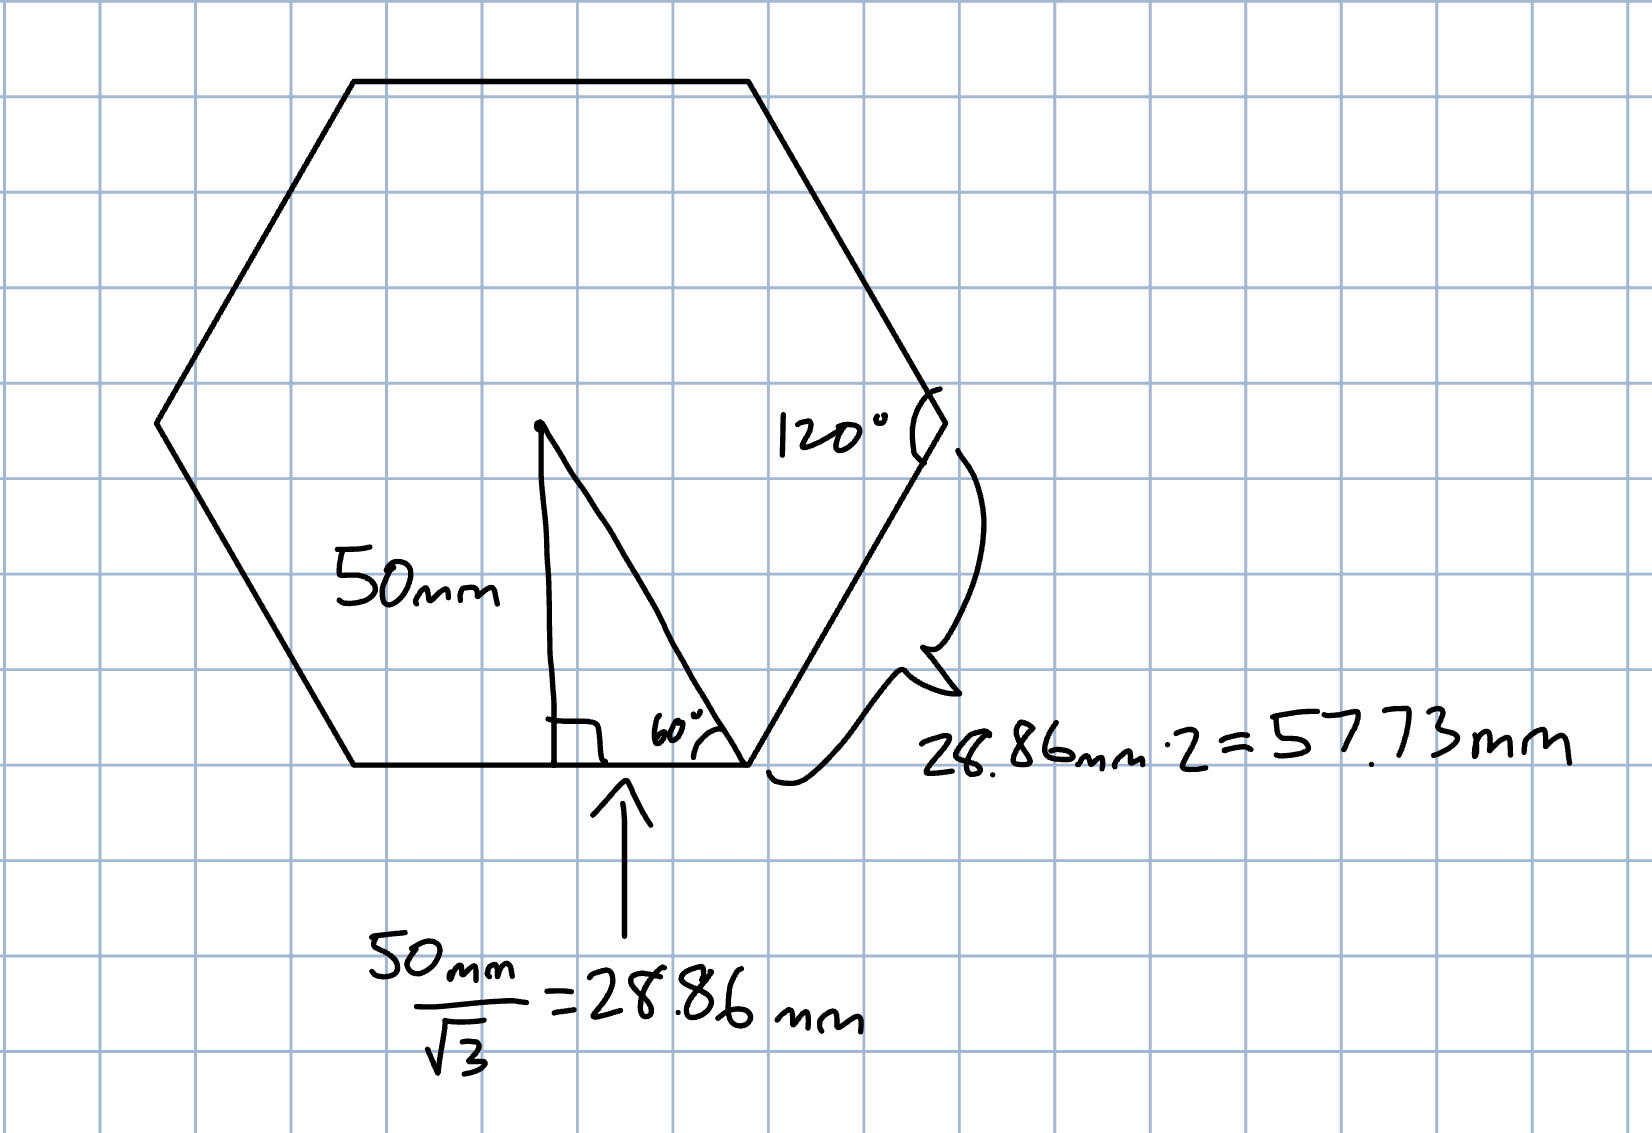 120°
50mm
60°
28.86mm·2=57.73mm
50mm
√3
=28.86mm